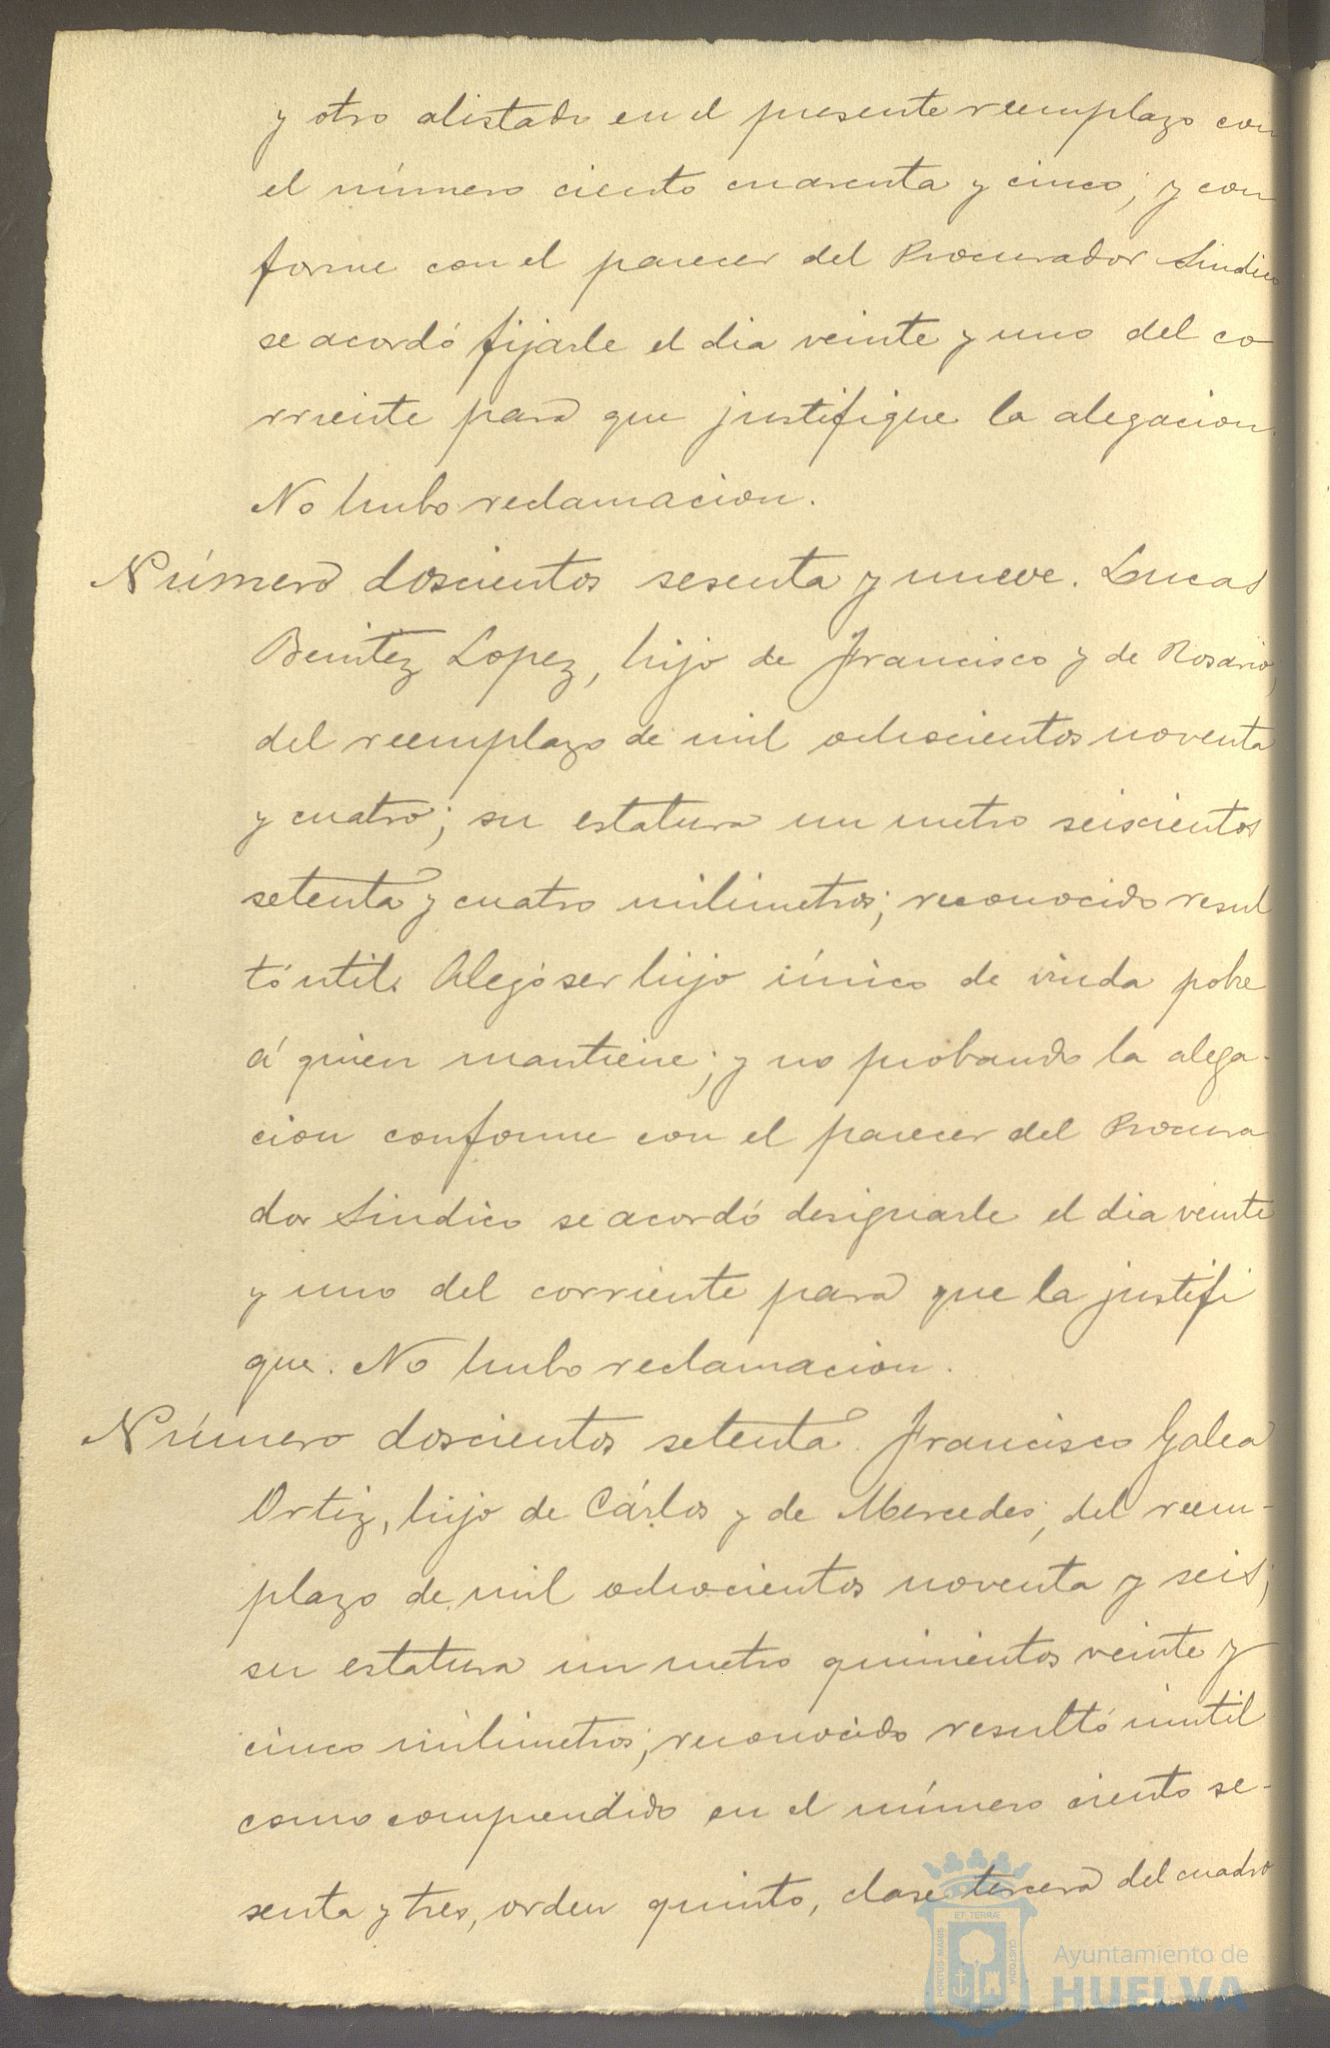 y otro alistado en el presente reemplazo con
el número ciento cuarenta y cinco; y con
forme con el parecer del Procurador Sindico
se acordó fijarle el dia veinte y uno del co
rriente para que justifique la alegacion.
No hubo reclamacion.
Número doscientos sesenta y nueve. Lucas
Benitez Lopez, hijo de Francisco y de Rosario,
del reemplazo de mil ochocientos noventa
y cuatro; su estatura un metro seiscientos
setenta y cuatro milimetros; reconocido resul
tó util. Alegó ser hijo único de viuda pobre
á quien mantiene; y no probando la alega-
cion conforme con el parecer del Procura
dor Sindico se acordó designarle el dia veinte
y uno del corriente para que la justifi
que. No hubo reclamacion.
Número doscientos setenta. Francisco Galea
Ortiz, hijo de Cárlos y de Mercedes, del reem-
plazo de mil ochocientos noventa y seis;
su estatura un metro quinientos veinte y
cinco milimetros; reconocido resultó inutil
como comprendido en el número ciento se-
senta y tres, orden quinto, clase tercera del cuadro
ET TERRÆ
PORTUS MARIS
CUSTODIA
Ayuntamiento de
HUELVA